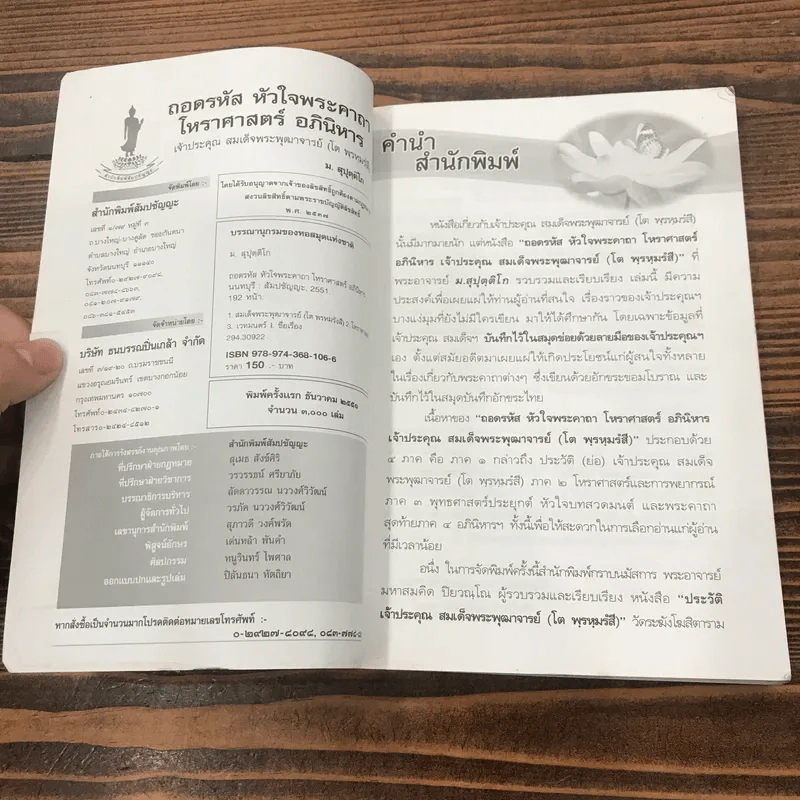 ถอดรหัส หัวใจพระคาถา
โหราศาสตร์ อภินิหาร
เจ้าประคุณ สมเด็จพระพุฒาจารย์ (โต พรหมรํสี)
ม. สุปฺตติโก
จัดพิมพ์โดย :-
สำนักพิมพ์สัมปชัญญะ
เลขที่ ๑/๓๙ หมู่ที่ ๓
ถ.บางใหญ่-บางคูลัด ซอยกันตนา
ตำบลบางใหญ่ อำเภอบางใหญ่
จังหวัดนนทบุรี ๑๑๑๔๐
โทรศัพท์๐-๒๙๒๗-๘๐๙๔,
จัดจำหน่ายโดย :-
บริษัท ธนบรรณปิ่นเกล้า จำกัด
แขวงอรุณอมรินทร์ เขตบางกอกน้อย
กรุงเทพมหานคร ๑๐๗๐๐
โทรศัพท์๐-๒๔๓๔-๔๒๗๐-๑
โทรสาร๐-๒๔๒๔-๔๕๑๒
โดยได้รับอนุญาตจากเจ้าของลิขสิทธิ์ถูกต้อง
สงวนลิขสิทธิ์ตามพระราชบัญญัติลิขสิทธิ์
พ.ศ. ๒๕๓๗
บรรณานุกรมของหอสมุดแห่งชาติ
ม. สุปุตฺติโก
ถอดรหัส หัวใจพระคาถา โหราศาสตร์ อภินิหาร.
นนทบุรี : สัมปชัญญะ, 2551.
192 หน้า.
1. สมเด็จพระพุฒาจารย์ (โต พรหมรํสี) 2. โหราศาสตร์
3. เวทมนตร์ I. ชื่อเรื่อง
294.30922
ISBN 978-974-368-106-6
ราคา 150 .- บาท
พิมพ์ครั้งแรก ธันวาคม ๒๕๕๑
จำนวน ๓,๐๐๐ เล่ม
ภายใต้การรังสรรค์งานคุณภาพโดย:- สำนักพิมพ์สัมปชัญญะ
ที่ปรึกษาฝ่ายกฎหมาย สุเมธ สังข์ศิริ
ที่ปรึกษาฝ่ายวิชาการ วรวรรธน์ ศรียาภัย
บรรณาธิการบริหาร ลัดดาวรรณ นววงศ์วิวัฒน์
ผู้จัดการทั่วไป วรภัค นววงศ์วิวัฒน์
เลขานุการสำนักพิมพ์ สุภาวดี วงศ์พรัด
พิสูจน์อักษร เด่นหล้า พันคำ
ศิลปกรรม หนูรินทร์ ไพศาล
ออกแบบปกและรูปเล่ม ปิลันธนา หัตถิยา
หากสั่งซื้อเป็นจำนวนมากโปรดติดต่อหมายเลขโทรศัพท์ :-
๐-๒๙๒๗-๘๐๙๔,
คำนำ
สำนักพิมพ์
หนังสือเกี่ยวกับเจ้าประคุณ สมเด็จพระพุฒาจารย์ (โต พฺรหฺมรํสี)
นั้นมีมากมายนัก แต่หนังสือ "ถอดรหัส หัวใจพระคาถา โหราศาสตร์
อภินิหาร เจ้าประคุณ สมเด็จพระพุฒาจารย์ (โต พฺรหฺมรํสี)" ที่
พระอาจารย์ ม.สุปุตฺติโก รวบรวมและเรียบเรียง เล่มนี้ มีความ
ประสงค์เพื่อเผยแผ่ให้ท่านผู้อ่านที่สนใจ เรื่องราวของเจ้าประคุณฯ
บางแง่มุมที่ยังไม่มีใครเขียน มาให้ได้ศึกษากัน โดยเฉพาะข้อมูลที่
เจ้าประคุณ สมเด็จฯ บันทึกไว้ในสมุดข่อยด้วยลายมือของเจ้าประคุณฯ
เอง ตั้งแต่สมัยอดีตมาเผยแผ่ให้เกิดประโยชน์แก่ผู้สนใจทั้งหลาย
ในเรื่องเกี่ยวกับพระคาถาต่างๆ ซึ่งเขียนด้วยอักขระขอมโบราณ และ
บันทึกไว้ในสมุดบันทึกอักขระไทย
เนื้อหาของ "ถอดรหัส หัวใจพระคาถา โหราศาสตร์ อภินิหาร
เจ้าประคุณ สมเด็จพระพุฒาจารย์ (โต พฺรหฺมรํสี)" ประกอบด้วย
๔ ภาค คือ ภาค ๑ กล่าวถึง ประวัติ (ย่อ) เจ้าประคุณ สมเด็จ
พระพุฒาจารย์ (โต พฺรหฺมรํสี) ภาค ๒ โหราศาสตร์และการพยากรณ์
ภาค ๓ พุทธศาสตร์ประยุกต์ หัวใจบทสวดมนต์ และพระคาถา
สุดท้ายภาค ๔ อภินิหารฯ ทั้งนี้เพื่อให้สะดวกในการเลือกอ่านแก่ผู้อ่าน
ที่มีเวลาน้อย
อนึ่ง ในการจัดพิมพ์ครั้งนี้สำนักพิมพ์กราบนมัสการ พระอาจารย์
มหาสมคิด ปิยวณฺโณ ผู้รวบรวมและเรียบเรียง หนังสือ "ประวัติ
เจ้าประคุณ สมเด็จพระพุฒาจารย์ (โต พฺรหฺมรํสี)" วัดระฆังโฆสิตาราม